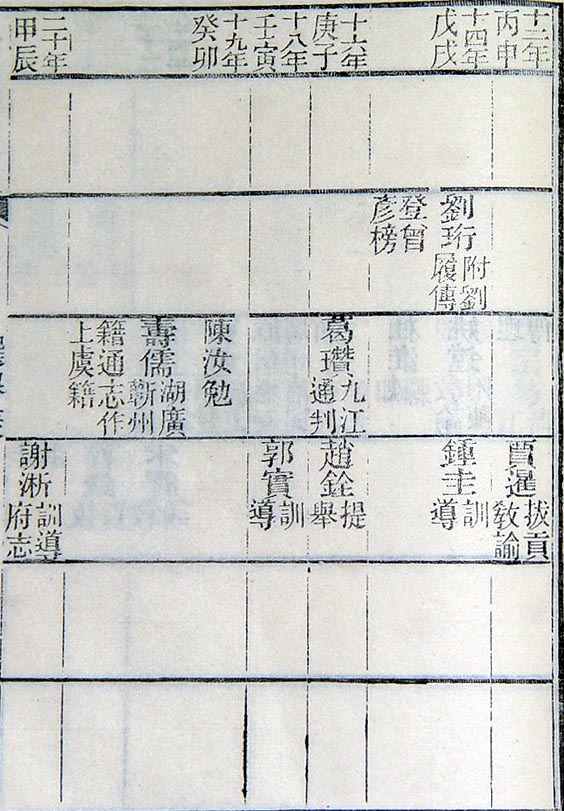 十二年
丙申
賈暹
拔貢
教諭
十四年
戊戌
劉珩
附劉
履傳
登曾
彥榜
鍾圭
訓
導
十六年
庚子
葛瓚
九江
通判
趙銓
提
舉
十八年
壬寅
郭實
訓
導
十九年
癸卯
陳汝勉
壽儒
湖廣
蘄州
籍通志作
上虞籍
二十年
甲辰
謝淅
訓導
府志